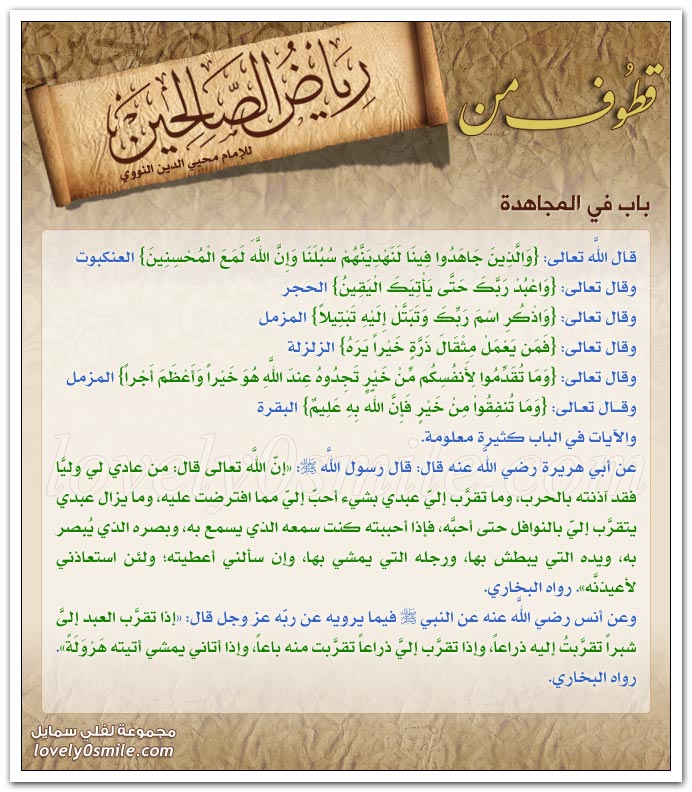 قطوف من
رِيَاضُ الصَّالِحِين
للإمام محيي الدين النووي
باب في المجاهدة
قال اللَّه تعالى: {وَالَّذِينَ جَاهَدُوا فِينَا لَنَهْدِيَنَّهُمْ سُبُلَنَا وَإِنَّ اللَّهَ لَمَعَ الْمُحْسِنِينَ} العنكبوت
وقال تعالى: {وَاعْبُدْ رَبَّكَ حَتَّى يَأْتِيَكَ الْيَقِينُ} الحجر
وقال تعالى: {وَاذْكُرِ اسْمَ رَبِّكَ وَتَبَتَّلْ إِلَيْهِ تَبْتِيلاً} المزمل
وقال تعالى: {فَمَن يَعْمَلْ مِثْقَالَ ذَرَّةٍ خَيْراً يَرَهُ} الزلزلة
وقال تعالى: {وَمَا تُقَدِّمُوا لأَنفُسِكُم مِّنْ خَيْرٍ تَجِدُوهُ عِندَ اللَّهِ هُوَ خَيْراً وَأَعْظَمَ أَجْراً} المزمل
وقـال تعالى: {وَمَا تُنفِقُوا مِنْ خَيْرٍ فَإِنَّ الله بِهِ عَلِيمٌ} البقرة
والآيات في الباب كثيرة معلومة.
عن أبي هريرة رضي اللَّه عنه قال: قال رسول اللَّه ﷺ: «إنّ اللَّه تعالى قال: من عادي لي وليَّا
فقد آذنته بالحرب، وما تقرَّب إليّ عبدي بشيء أحبّ إليّ مما افترضت عليه، وما يزال عبدي
يتقرَّب إليّ بالنوافل حتى أحبَّه، فإذا أحببته كنت سمعه الذي يسمع به، وبصره الذي يُبصر
به، ويده التي يبطش بها، ورجله التي يمشي بها، وإن سألني أعطيته؛ ولئن استعاذني
لأعيذنَّه». رواه البخاري.
وعن أنس رضي اللَّه عنه عن النبي ﷺ فيما يرويه عن ربّه عز وجل قال: «إذا تقرَّب العبد إليَّ
شبراً تقرَّبتُ إليه ذراعاً، وإذا تقرَّب إليَّ ذراعاً تقرَّبت منه باعاً، وإذا أتاني يمشي أتيته هَرْوَلَةً».
رواه البخاري.
lovely0smile.com
مجموعة لفلي سمايل
lovely0smile.com